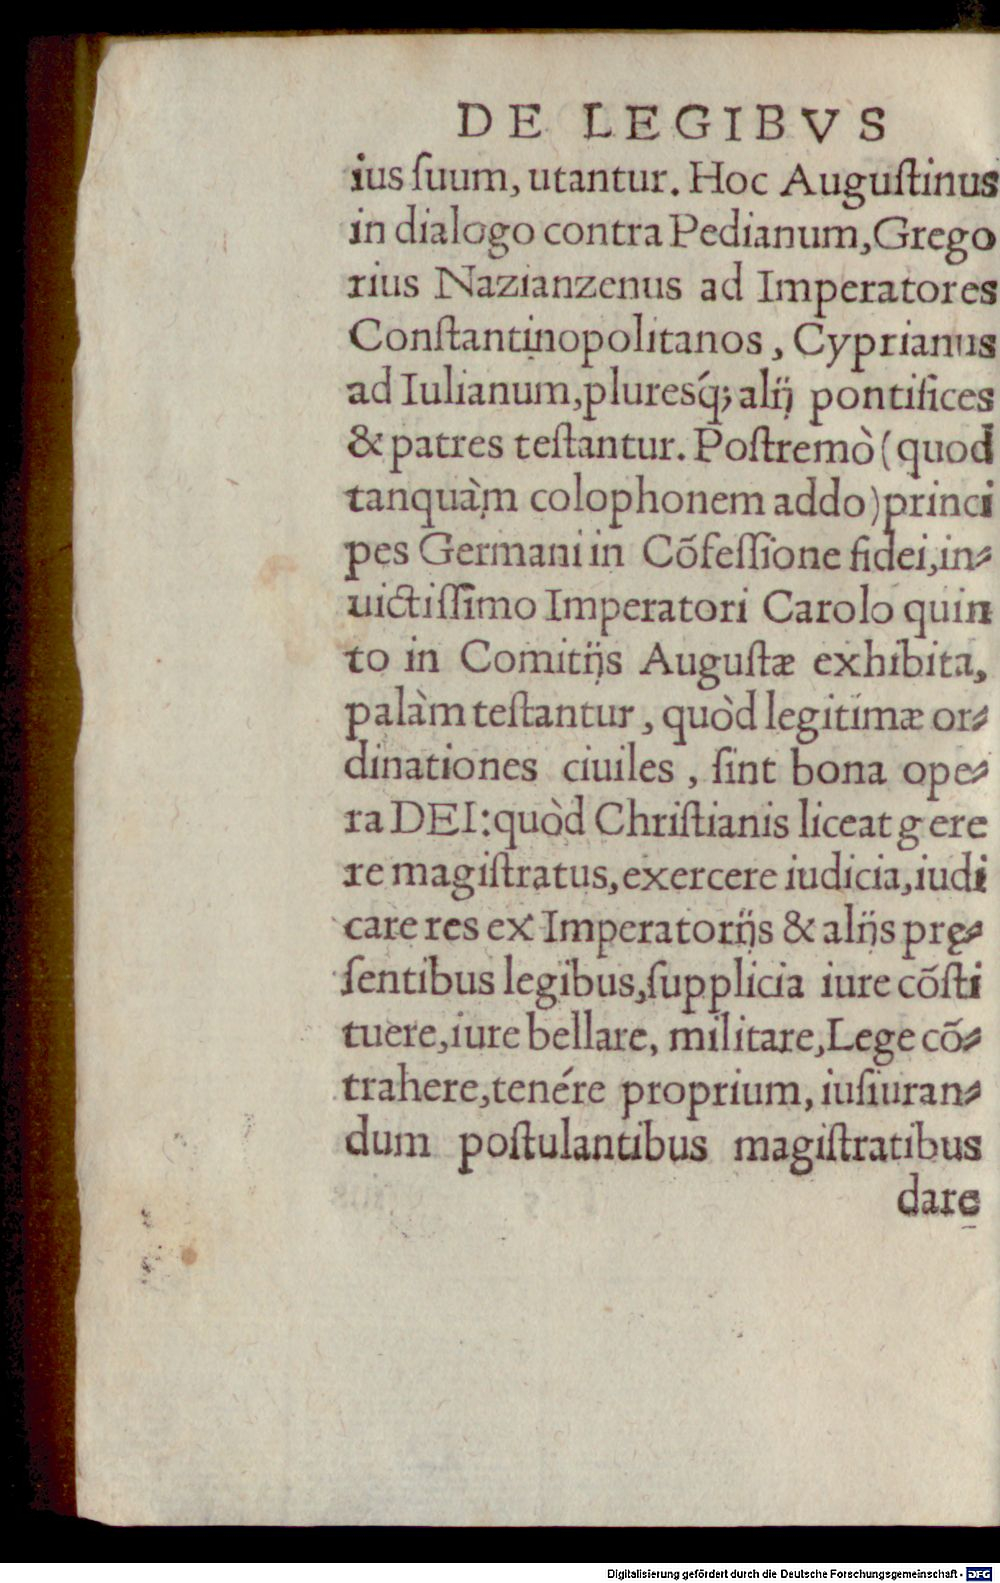 DE LEGIBVS
ius ſuum, utantur. Hoc Auguſtinus
in dialogo contra Pedianum, Grego
rius Nazianzenus ad Imperatores
Conſtantinopolitanos, Cyprianus
ad Iulianum, pluresq́; alij pontifices
& patres teſtantur. Poſtremò (quod
tanquàm colophonem addo) princi
pes Germani in Cõfeſſione fidei, in⸗
uictiſſimo Imperatori Carolo quin
to in Comitijs Auguſtæ exhibita,
palàm teſtantur, quòd legitimæ or⸗
dinationes ciuiles, ſint bona ope⸗
ra DEI: quòd Chriſtianis liceat gere
re magiſtratus, exercere iudicia, iudi
care res ex Imperatorijs & alijs prę⸗
ſentibus legibus, ſupplicia iure cõſti
tuere, iure bellare, militare, Lege cõ⸗
trahere, tenére proprium, iuſiuran⸗
dum poſtulantibus magiſtratibus
dare
Digitalisierung gefördert durch die Deutsche Forschungsgemeinschaft - DFG